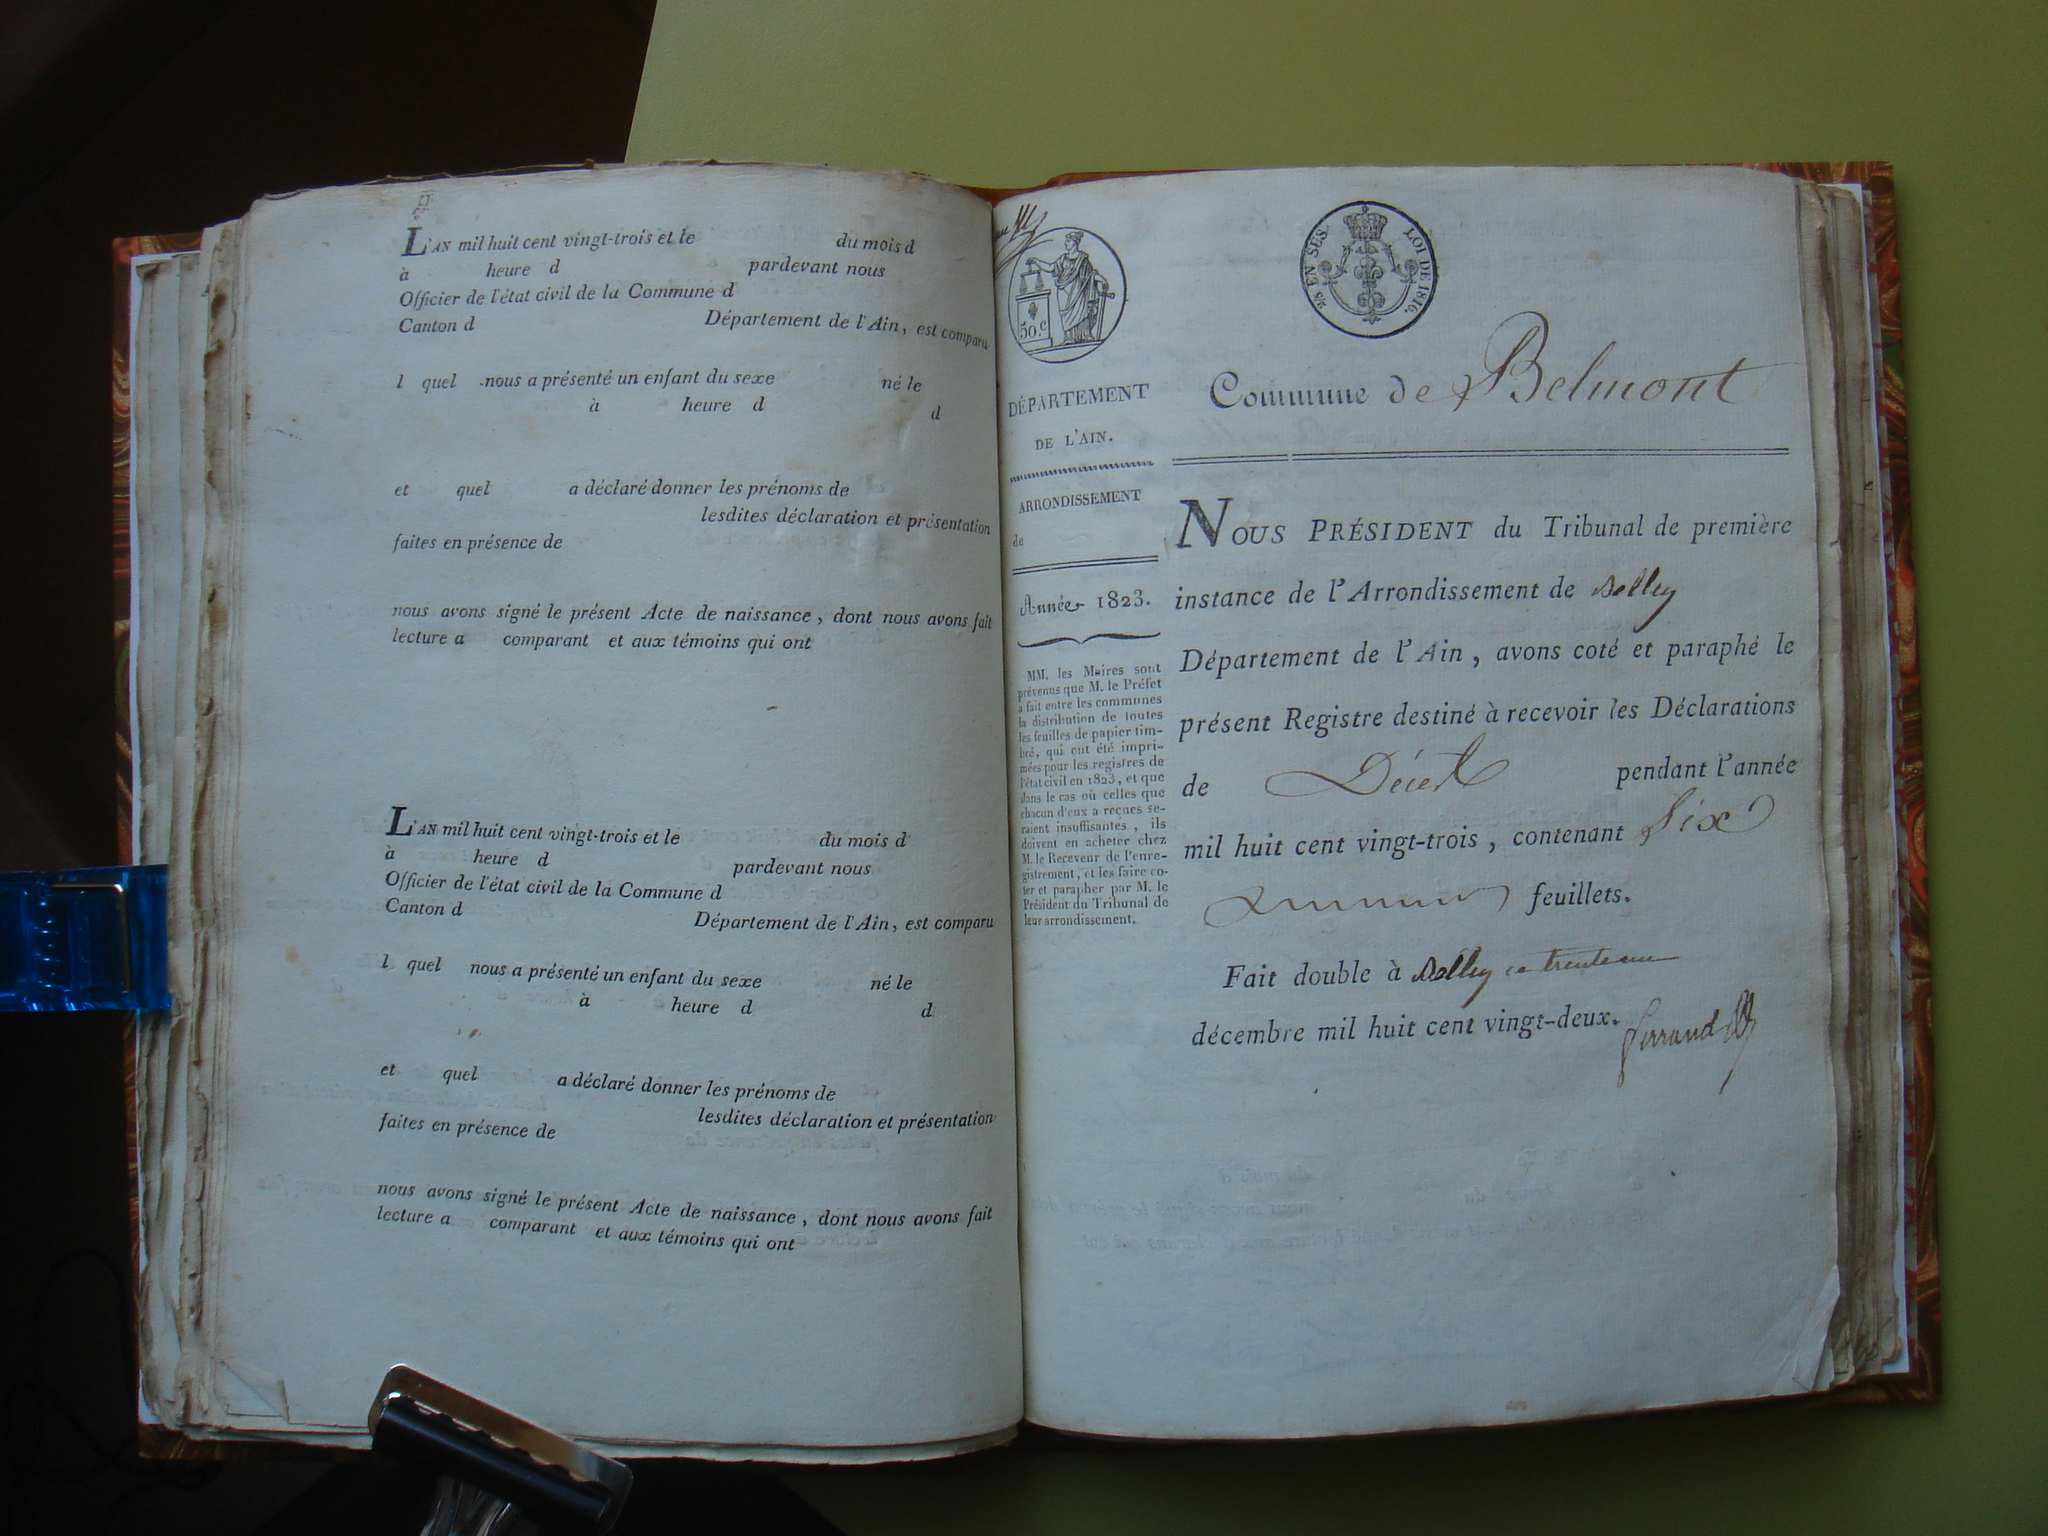 L'AN mil huit cent vingt-trois et le du mois d
à heure d pardevant nous
Officier de l'état civil de la Commune d
Canton d Département de l'Ain, est comparu
l quel nous a présenté un enfant du sexe né le
à heure d d
et quel a déclaré donner les prénoms de
lesdites déclaration et présentation
faites en présence de
nous avons signé le présent Acte de naissance, dont nous avons fait
lecture a comparant et aux témoins qui ont
L'AN mil huit cent vingt-trois et le du mois d
à heure d pardevant nous
Officier de l'état civil de la Commune d
Canton d Département de l'Ain, est comparu
l quel nous a présenté un enfant du sexe né le
à heure d d
et quel a déclaré donner les prénoms de
lesdites déclaration et présentation
faites en présence de
nous avons signé le présent Acte de naissance, dont nous avons fait
lecture a comparant et aux témoins qui ont
50.c
EN SUS. LOI DE 1816.
DÉPARTEMENT
DE L'AIN.
ARRONDISSEMENT
de
Année 1823.
MM. les Maires sont
prévenus que M. le Préfet
a fait entre les communes
la distribution de toutes
les feuilles de papier tim-
bré, qui ont été impri-
mées pour les registres de
l'état civil en 1823, et que
dans le cas où celles que
chacun d'eux a reçues se-
raient insuffisantes, ils
doivent en acheter chez
M. le Receveur de l'enre-
gistrement, et les faire co-
ter et parapher par M. le
Président du Tribunal de
leur arrondissement.
Commune de Belmont
NOUS PRÉSIDENT du Tribunal de première
instance de l'Arrondissement de Belley
Département de l'Ain, avons coté et paraphé le
présent Registre destiné à recevoir les Déclarations
de Décès pendant l'année
mil huit cent vingt-trois, contenant Six
feuillets.
Fait double à Belley ce trente un
décembre mil huit cent vingt-deux.